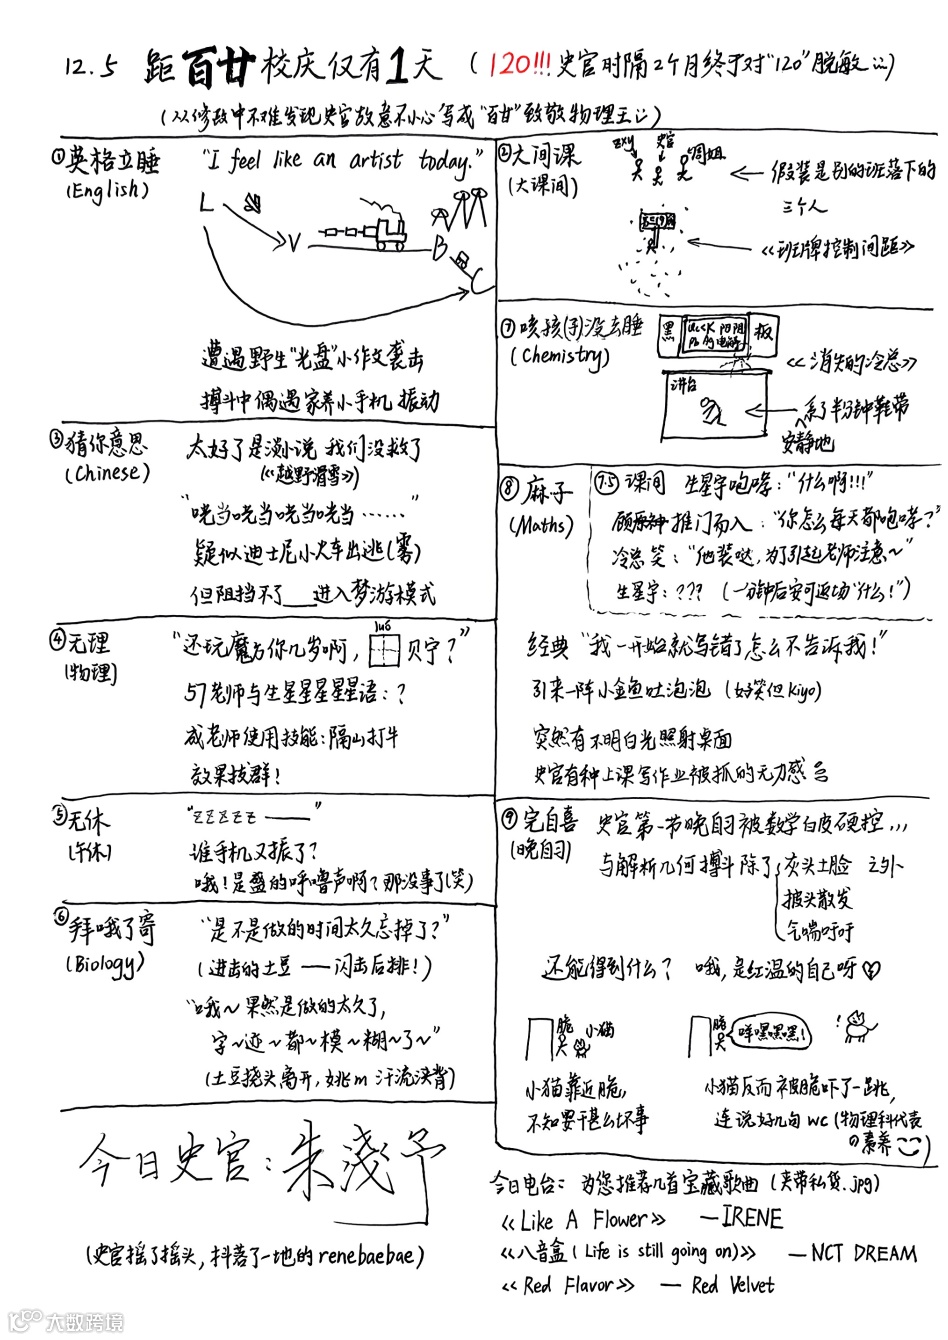 12.5 距百廿校庆仅有1天 (120!!! 史官时隔2个月终于对"120"脱敏……)
(从修改中不难发现史官故意不小心写成"百廿"致敬物理王……)
①英格立睡 (English)
"I feel like an artist today."
L V B C
遭遇野生"光盘"小作文袭击
搏斗中偶遇家养小手机振动
②大间课 (大课间)
zxy 史官 周姐
← 假装是别的班落下的
三个人
← 《班牌控制间距》
③猜你意思 (Chinese)
太好了是演小说 我们没救了
(《越野滑雪》)
"咣当咣当咣当咣当……"
疑似迪士尼小火车出逃(雾)
但阻挡不了___进入梦游模式
④无理 (物理)
"还玩魔方你几岁啊, 贝宁?"
57老师与生星星星星星语:?
成老师使用技能:隔山打牛
效果拔群!
⑤无休 (午休)
"zzzzz ——"
谁手机又振了?
哦!是盈的呼噜声啊?那没事了(笑)
⑥拜哦了寄 (Biology)
"是不是做的时间太久忘掉了?"
(进击的土豆——闪击后排!)
"哦~果然是做的太久了,
字~迹~都~模~糊~了~"
(土豆挠头离开,姚m汗流浃背)
⑦咳孩(子)没去睡 (Chemistry)
黑 板
的电解
《消失的冷总》
讲台
← 系了半分钟鞋带
安静地
⑧麻子 (Maths)
7.5 课间 生星宇咆哮:"什么啊!!!"
推门而入:"你怎么每天都咆哮?"
冷总笑:"他装哒,为了引起老师注意~"
生星宇:??? (一分钟后安可返场"什么!")
经典"我一开始就写错了怎么不告诉我!"
引来一阵小鱼吐泡泡 (好笑但Kiyo)
突然有不明白光照射桌面
史官有种上课写作业被抓的无力感
⑨完自喜 (晚自习)
史官第一节晚自习被数学白皮硬控...
与解析几何搏斗除了 灰头土脸 之外
披头散发
气喘吁吁
还能得到什么? 哦,是红温的自己呀♡
脆 小猫
小猫靠近脆,
不知要干甚么坏事
脆 咩嘿嘿嘿! !
小猫反而被脆吓了一跳,
连说好几句wc(物理科代表
の素养)
今日史官:朱浅予
(史官摇了摇头,抖落了一地的renebaebae)
今日电台: 为您推荐几首宝藏歌曲 (夹带私货.jpg)
《Like A Flower》 —IRENE
《八音盒(Life is still going on)》 —NCT DREAM
《Red Flavor》 — Red Velvet
大数跨境